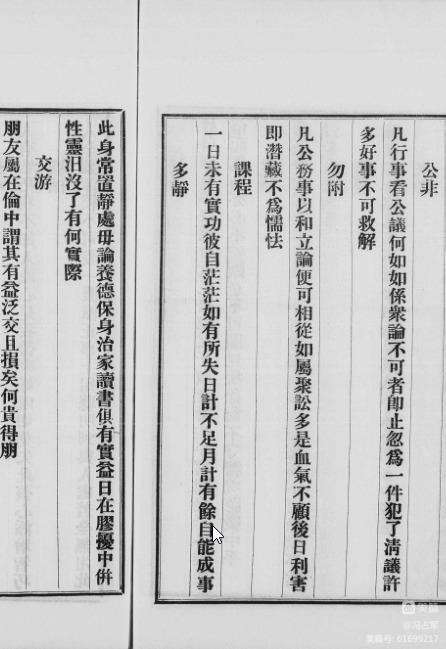 公非
凡行事看公議何如如係衆論不可者卽止忽爲一件犯了淸議許
多好事不可救解
勿附
凡公務事以和立論便可相從如屬聚訟多是血氣不顧後日利害
即潛藏不爲懦怯
課程
一日未有實功彼自茫茫如有所失日計不足月計有餘自能成事
多靜
此身常置靜處毋論養德保身治家讀書俱有實益日在膠擾中併
性靈汨沒了有何實際
交游
朋友屬在倫中謂其有益泛交且損矣何貴得朋
美篇
@冯占军
美篇号: 61699217